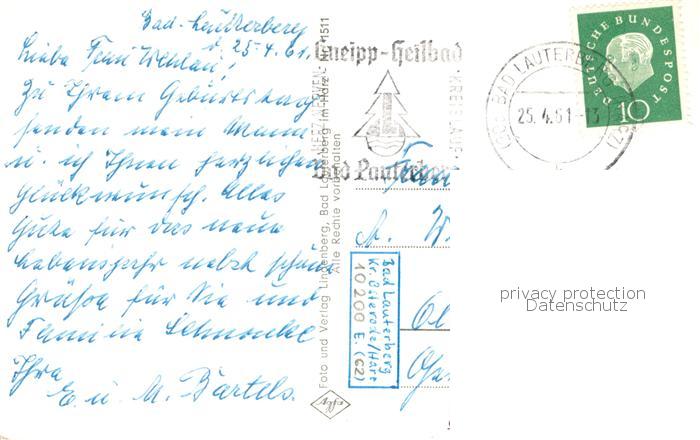 Bad-Lauterberg
d. 25.4.61.
Liebe Frau Wehlau!
Zu Ihrem Geburtstag
senden mein Mann
u. ich Ihnen herzlichen
Glückwunsch. Alles
Gute für das neue
Lebensjahr nebst schöne
Grüße für Sie und
Familie
Ihre
E. u. M. Bartels.
Foto und Verlag Lindenberg, Bad Lauterberg im Harz
Alle Rechte vorbehalten
1511
Agfa
Kneipp-Heilbad
Bad Lauterberg
KREISLAUF
BAD LAUTERBERG
25.4.61-13
DEUTSCHE BUNDESPOST
10
Frau
A. W
Bad Lauterberg
Kr. Osterode/Harz
10 200 E. (62)
privacy protection
Datenschutz